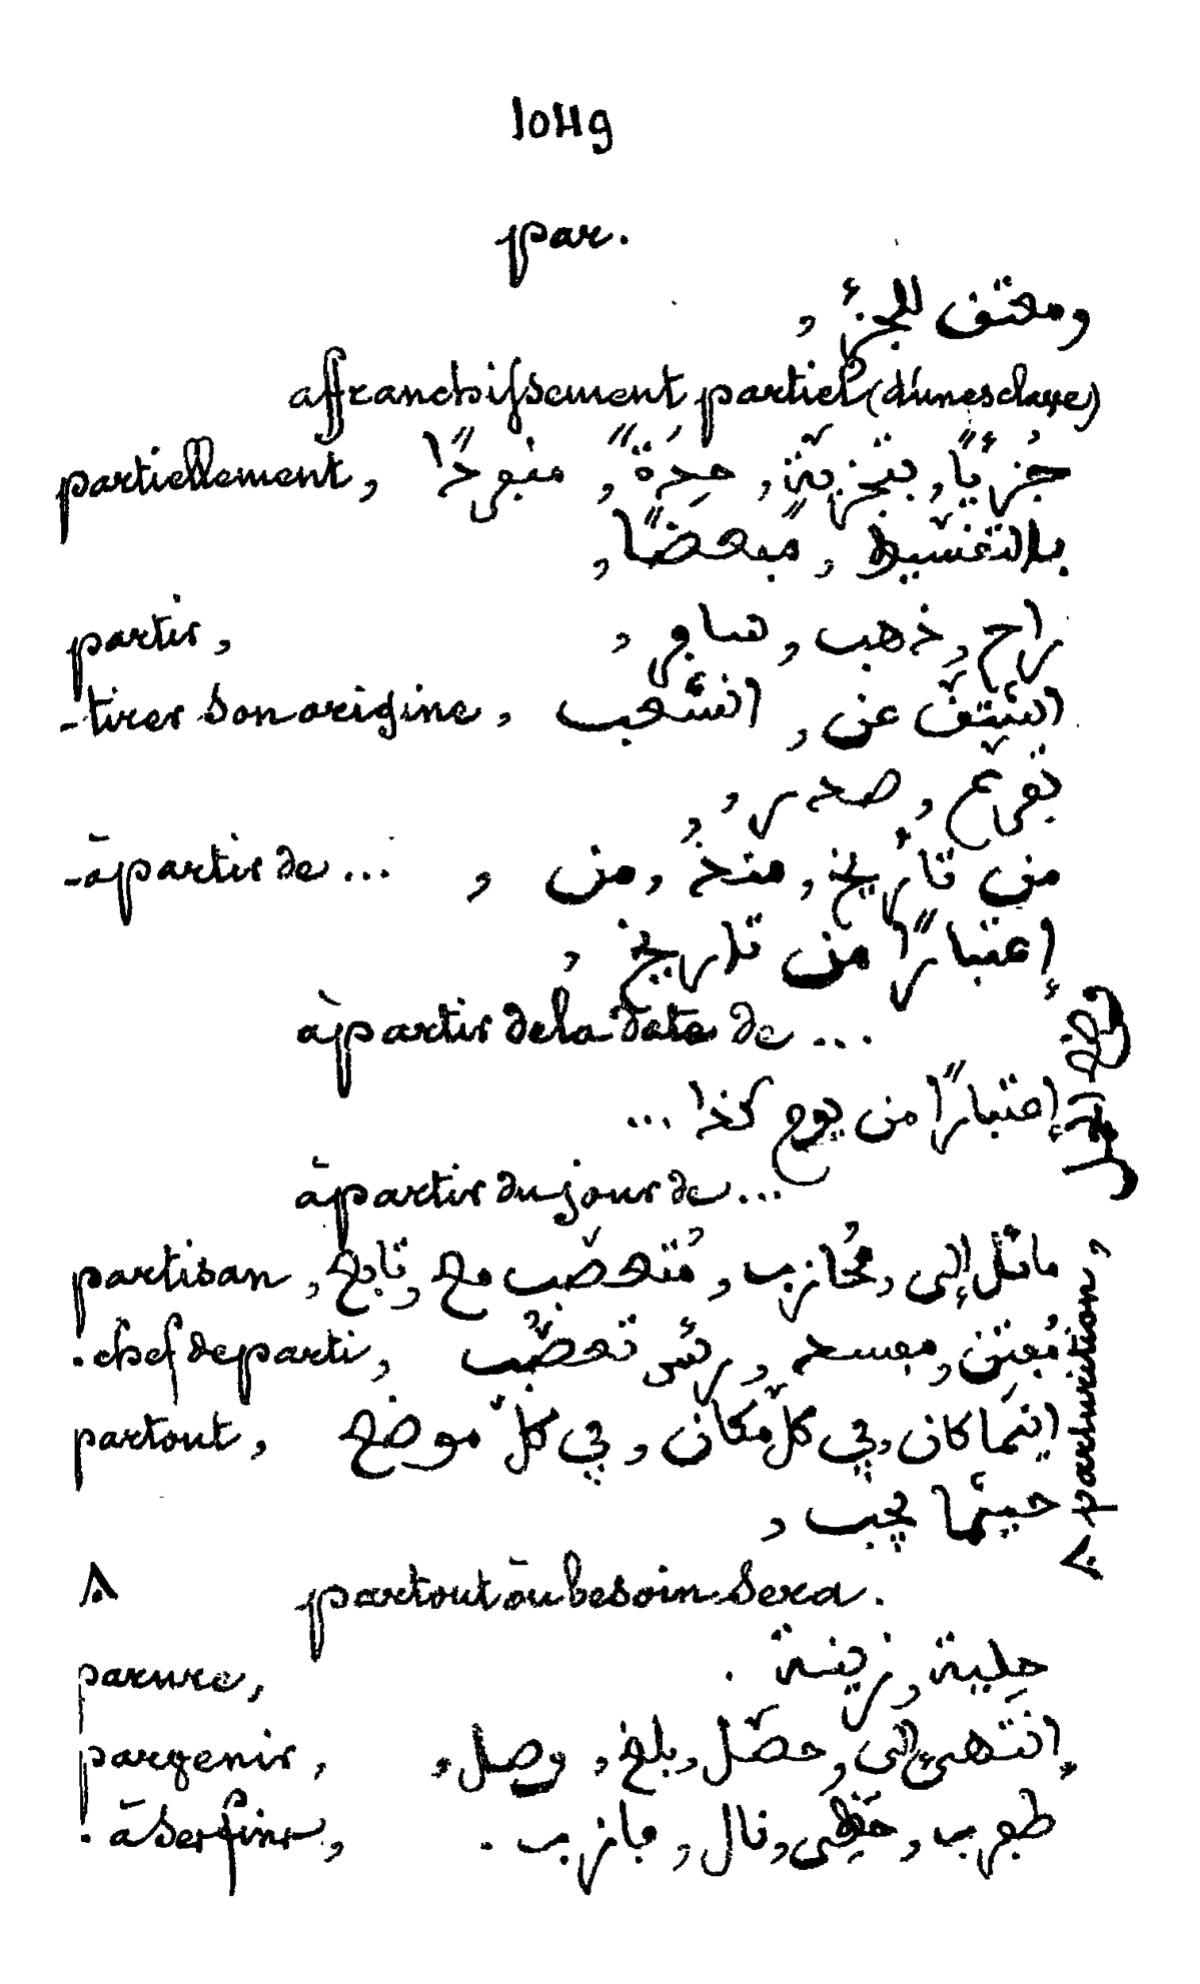 1049
par.
ومعتق للجزء ,
affranchissement partiel (d'un esclave)
partiellement, جُزءيًّا, بتجزيّة, حِدَةً, منفردًا
بالتقسيط, مبعّضًا,
partir, راح, ذهب, سافر,
- tirer son origine, اشتقّ عن, انشعب
تفرّع, صدر,
- à partir de ... من تأريخ, منذُ, من ,
إعتبارًا من تاريخ ,
à partir de la date de ...
إعتبارًا من يوم كذا ...
à partir du jour de ...
partisan, مائل إلى, مُحازب, مُتعصّب مع, تابع,
. chef de parti, مُفتن, مفسد, رئس تعصُّب
partout, اينَما كان, في كلّ مكان, في كلّ موضع
حيثما يجب ,
partout où besoin sera.
parure, حِلية, زينة .
parvenir, إنتهى إلى, حصّل, بلغ, وصل,
. à ses fins, ظفر ب, حظِي, نال, فاز ب .
parturition,